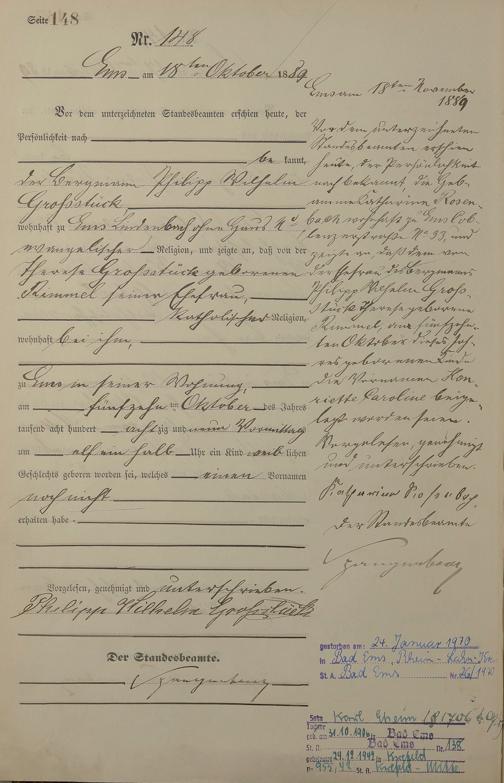 Seite 148
Nr. 148
Ems am 18ten Oktober 1889
Vor dem unterzeichneten Standesbeamten erschien heute, der
Persönlichkeit nach
be kannt,
der Bergmann Philipp Wilhelm
Großstück
wohnhaft zu Ems Lindenbach ohne Haus No,
evangelischer Religion, und zeigte an, daß von der
Therese Großstück geborenen
Kimmel seiner Ehefrau,
katholischer Religion,
wohnhaft bei ihm,
zu Ems in seiner Wohnung,
am fünfzehn ten Oktober des Jahres
tausend acht hundert achtzig und neun Vormittag
um elf ein halb Uhr ein Kind weib lichen
Geschlechts geboren worden sei, welches einen Vornamen
noch nicht
erhalten habe
Vorgelesen, genehmigt und unterschrieben.
Philipp Wilhelm Großstück
Der Standesbeamte.
Ems am 18ten November
1889
Vor dem unterzeichneten
Standesbeamten erschien
heute, der Persönlichkeit
nach bekannt, die Heb-
amme Katharine Rosen-
bach wohnhaft zu Ems Cob-
lenzerstraße No 33, und
zeigte an, daß dem von
der Ehefrau des Bergmanns
Philipp Wilhelm Groß-
stück Therese geborene
Kimmel, am fünfzehn-
ten Oktober dieses Jah-
res geborenen Kinde
die Vornamen Hen-
riette Caroline beige-
legt worden seien.
Vorgelesen, genehmigt
und unterschrieben.
Katharina Rosenbach
Der Standesbeamte
gestorben am: 24. Januar 1970
in Bad Ems, Rhein-Lahn-Kr.
St. A. Bad Ems Nr. 26/1970
Karl
31.10.1906 Bad Ems
St. A. Bad Ems Nr. 138
24.12.1942 Krefeld
St. A. Krefeld-Mitte